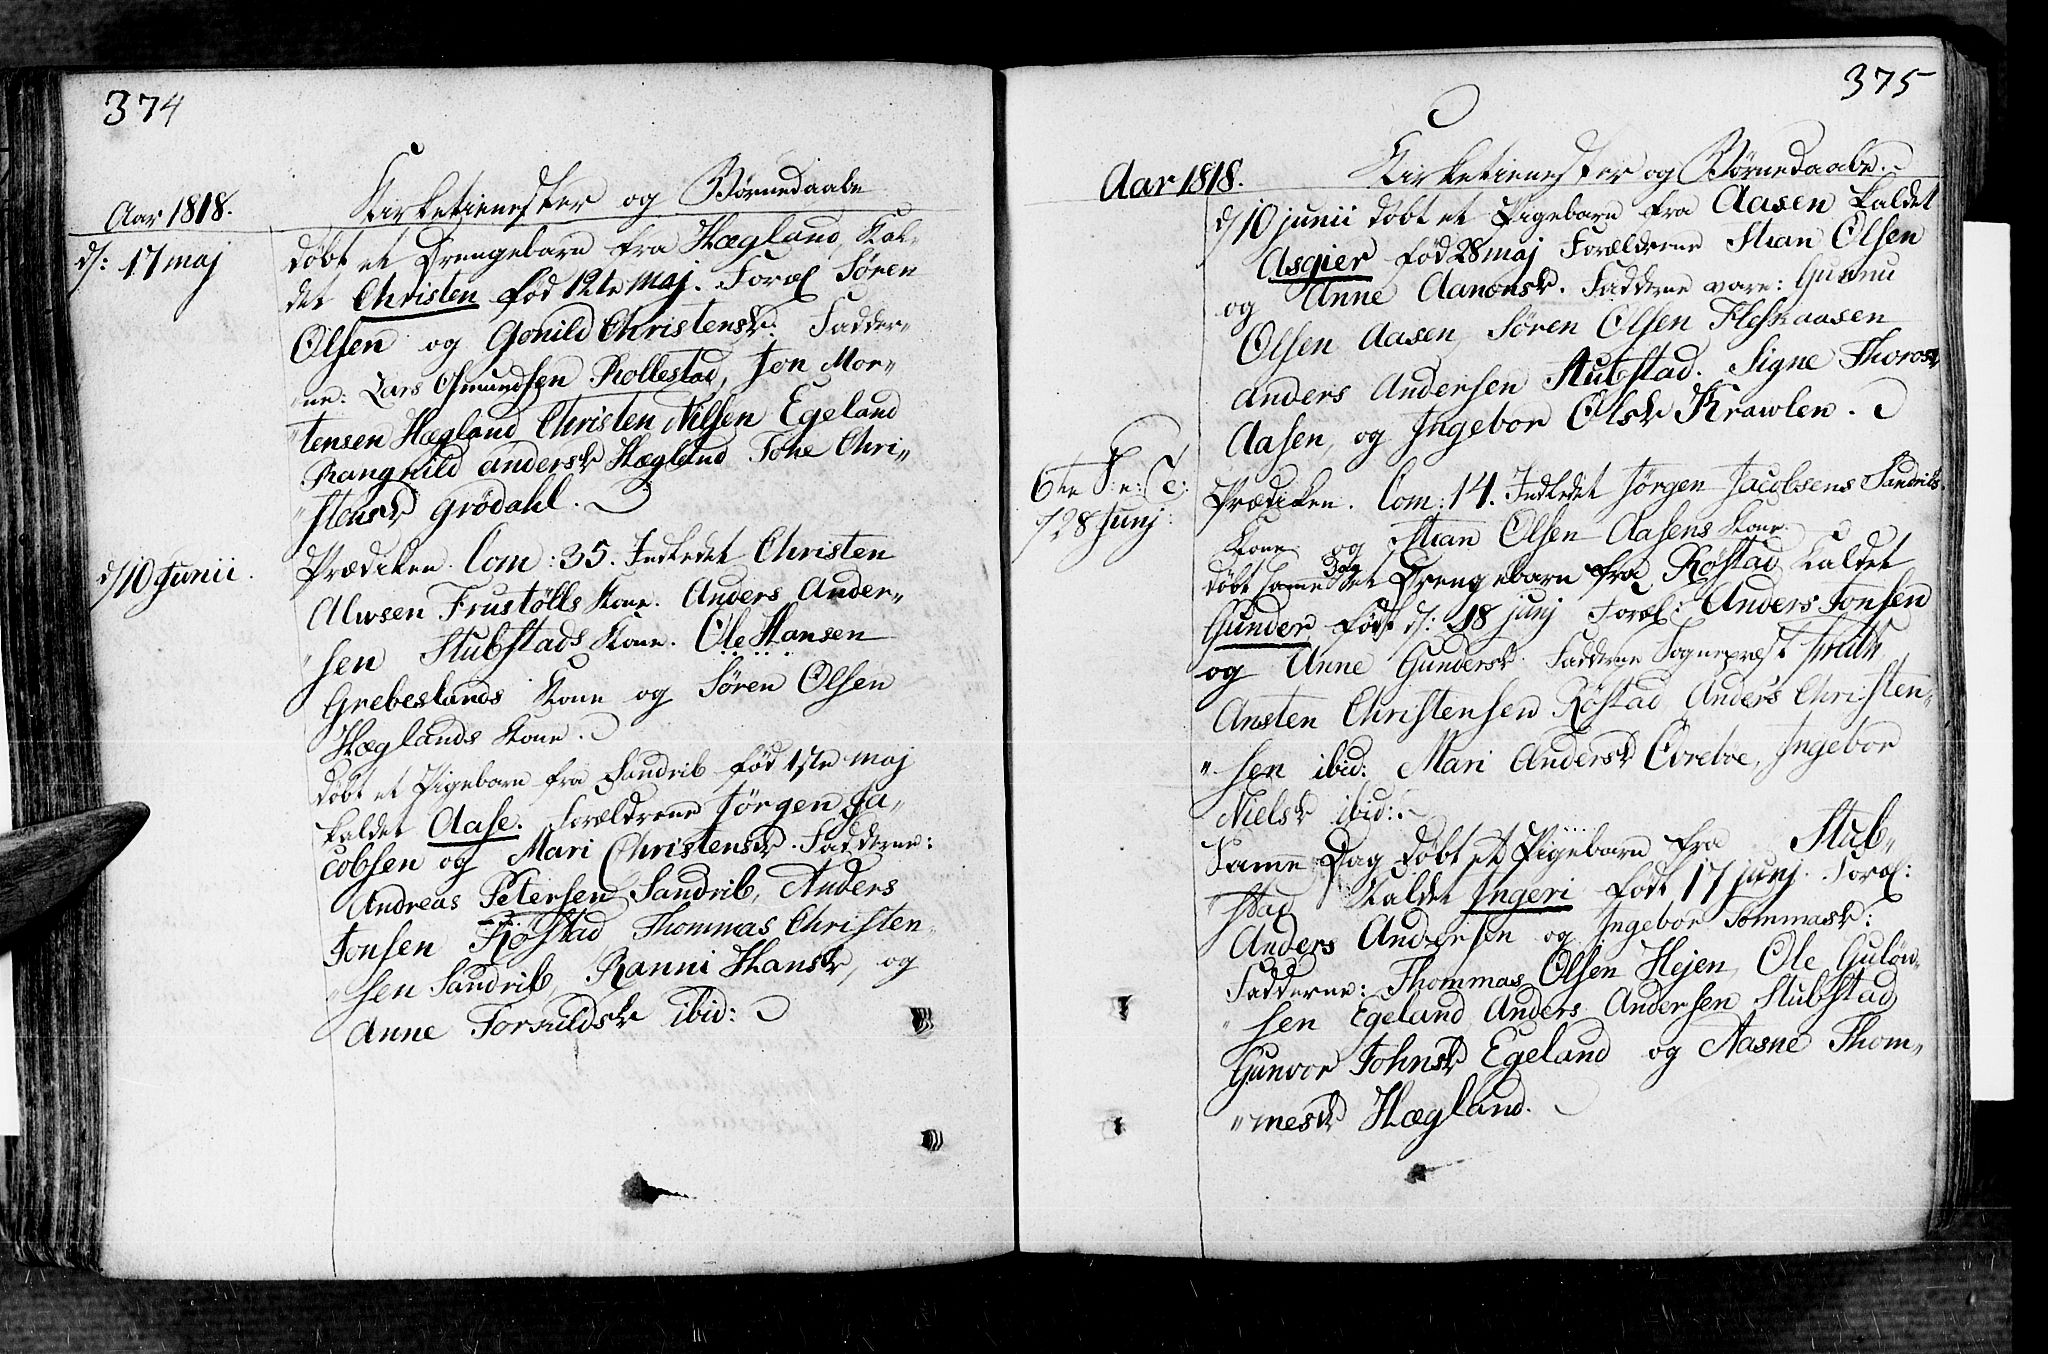 374
Kirketienester og Börnedaabe
Aar 1818.
d: 17 maj
döbt et Drengebarn fra Hægland, Kal-
det Christen fød 12te Maj. Foræl Sören
Olsen og Gonild Christensd: Fadder-
ne: Lars Osmundsen Rollestad, Jon Mor-
"tensen Hægland Christen Nilsen Egeland
Rangnild andersd Hægland Tone Chri-
"stensd Grödahl.
d/10 Junii.
Prædiken. Com: 35. Indledet Christen
Alwsen Frustölls Kone. Anders Ander-
"sen Stubstads Kone. Ole Hansen
Grebeslands Kone og Sören Olsen
Hæglands Kone.
döbt et Pigebarn fra Sandrib fød 1ste maj
kaldet Aase. Forældrene Jörgen Ja-
cobsen og Mari Christensd. Fadderne:
Andreas Petersen Sandrib, Anders
Jonsen Röstad Thommas Christen-
"sen Sandrib, Ranni Hansd, og
Anne Torkildsd ibid:
375
Kirketienester og Börnedaabe.
Aar 1818.
d/10 junii döbt et Pigebarn fra Aasen kaldet
Asgier fød 28 maj Forældrene Stian Olsen
og Anne Aanonsd. Fadderne vare: Gunnu
Olsen Aasen Sören Olsen Fleskaasen
Anders Andersen Stubstad. Signe Thorosd
Aasen, og Ingebor Olsd Krawlen.
6te S: e: T:
d/28 Junj:
Prædiken. Com: 14. Indledet Jörgen Jacobsens Sandribs
Kone og Stian Olsen Aasens Kone
döbt samme Dag et Drengebarn fra Röstad Kaldet
Gunder født d: 18 junj Foræl: Anders Jonsen
og Anne Gundersd. Fadderne Sognepræst
Ansten Christensen Röstad, Anders Christen-
"sen ibid: Mari Andersd Övreboe, Ingebor
Nielsd ibid:
Same Dag döbt et Pigebarn fra Stub-
"stad Kaldet Ingeri født 17 junj. Foræl:
Anders Andersen og Ingebor Tommasd:
Fadderne: Thommas Olsen Hejen, Ole Gulöw-
"sen Egeland Anders Andersen Stubstad
Gunvor Johnsd Egeland og Aasne Thom-
"mesd Hægland.